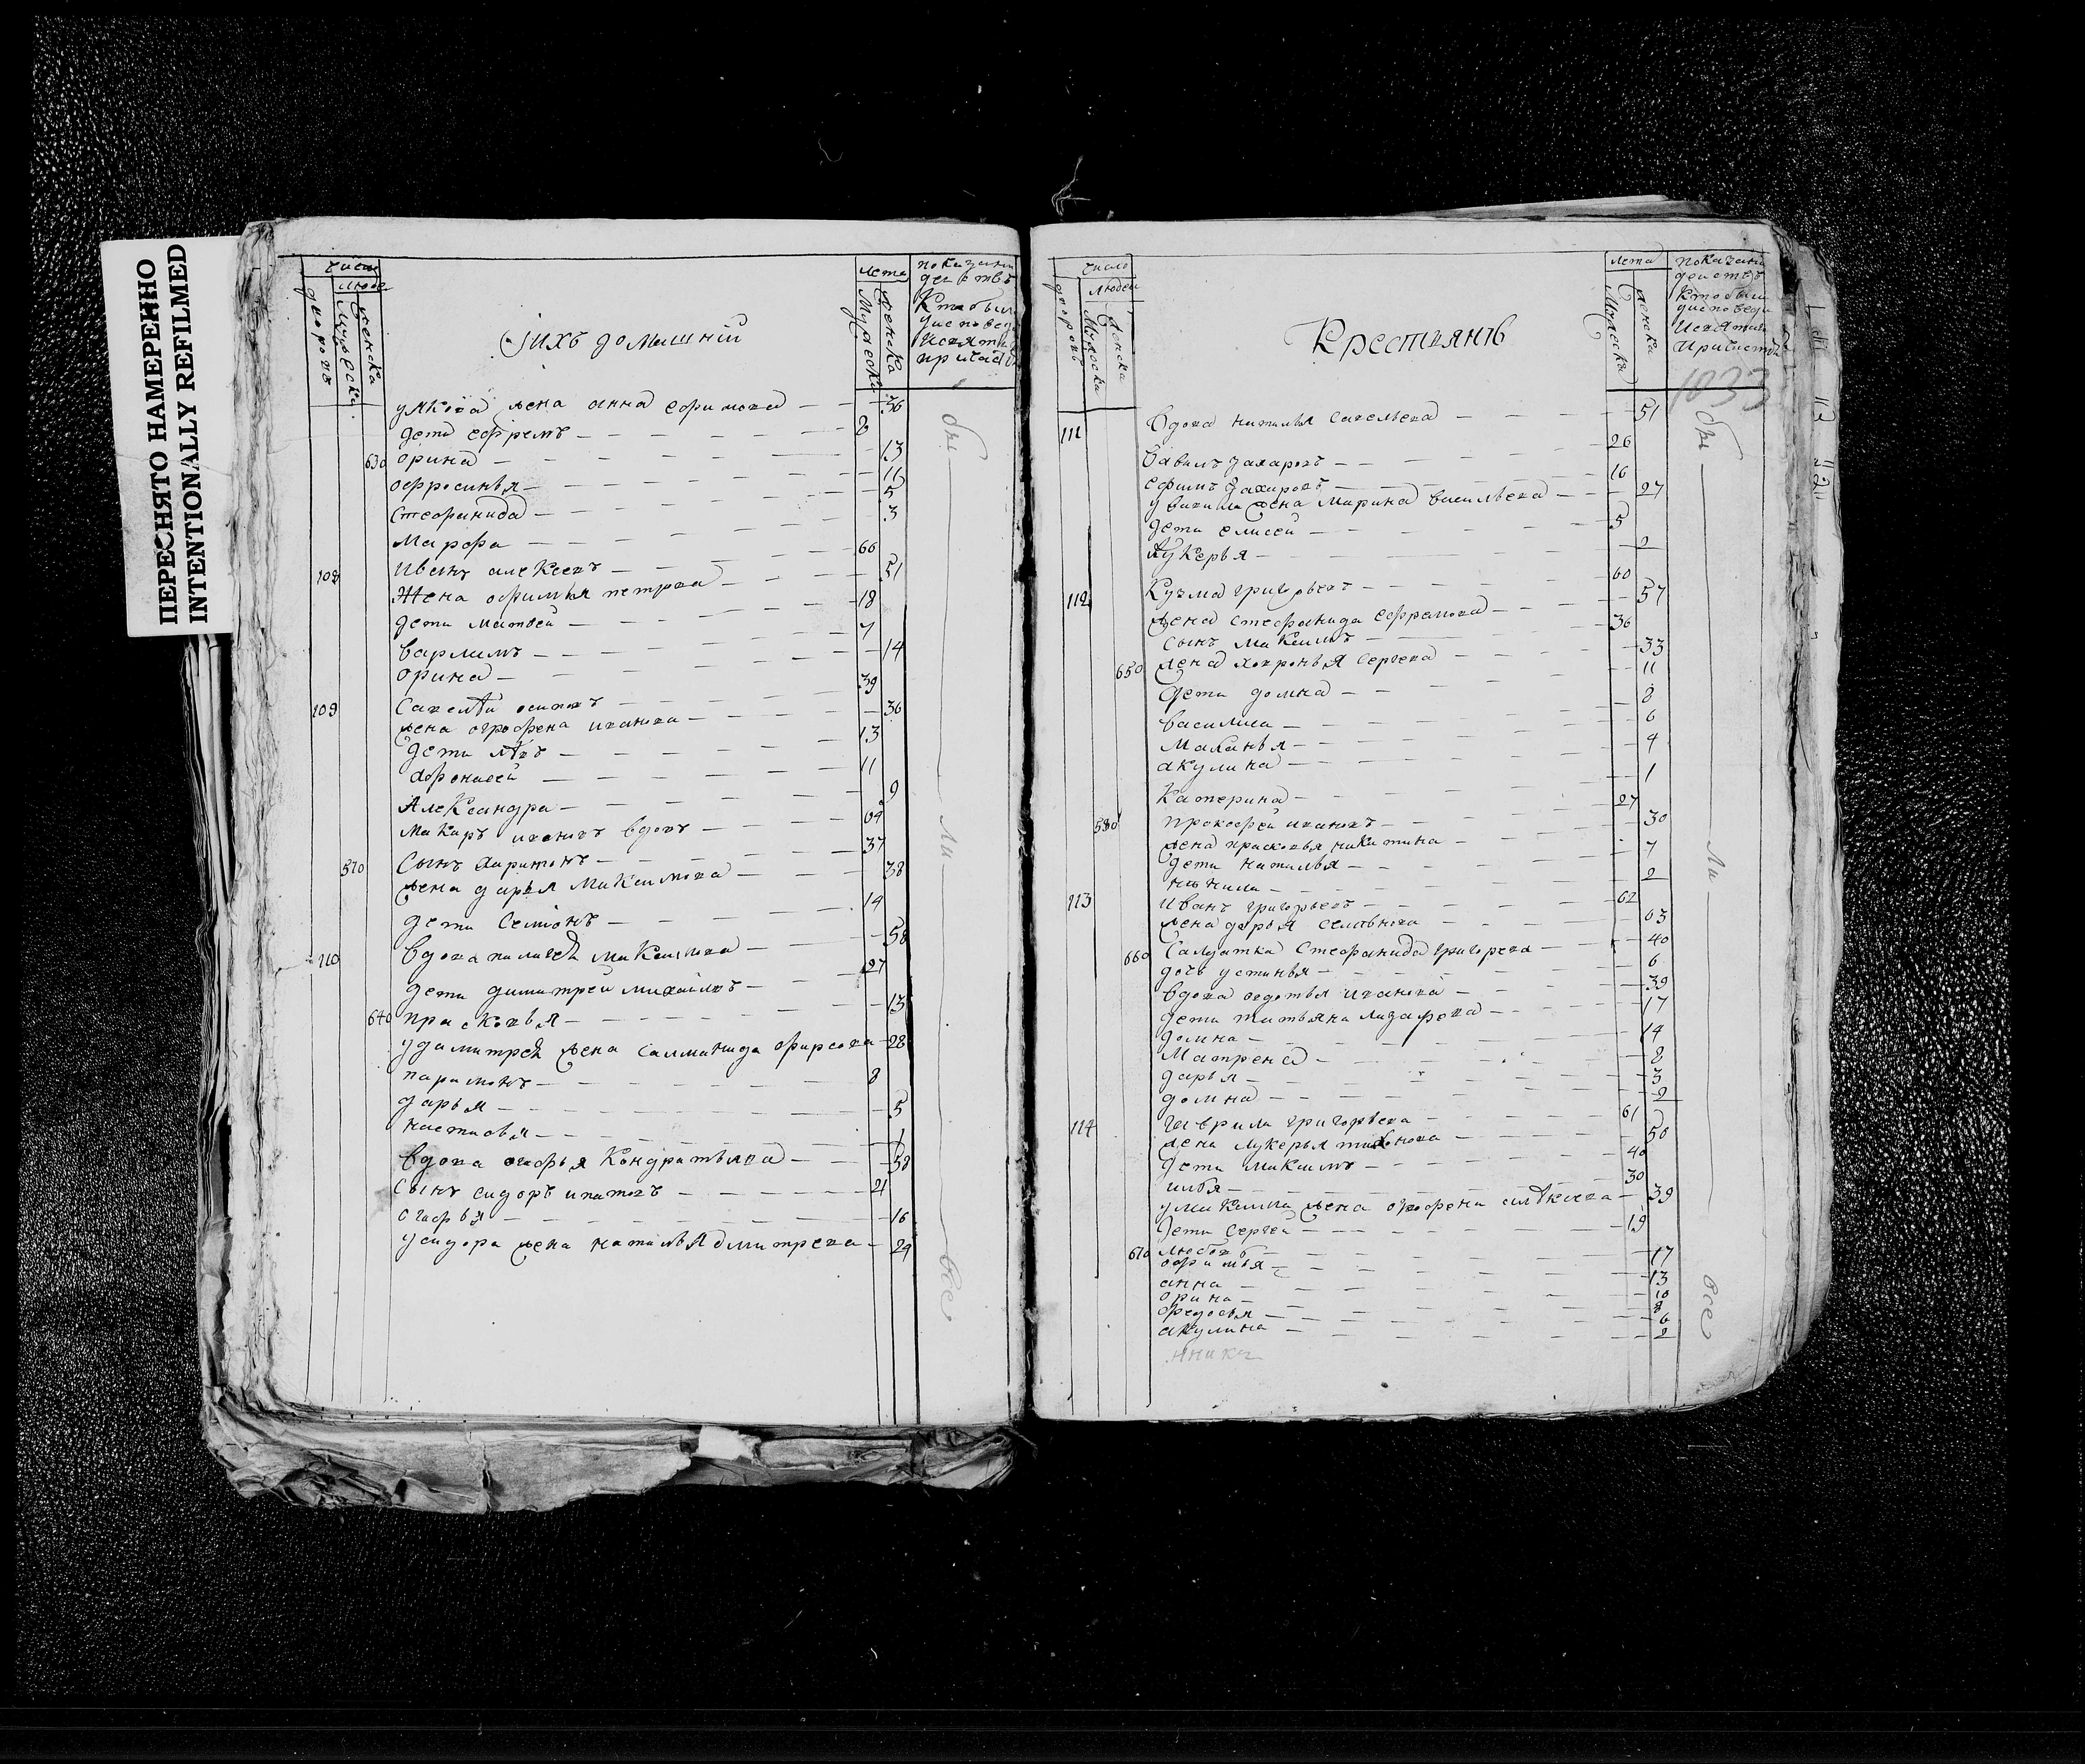 ПЕРЕСНЯТО НАМЕРЕННО
INTENTIONALLY REFILMED
число
людей
дворовъ
мужеска
женска
Ѱихъ домашній
лета
мужеска
женска
показаніи
действъ
Кто былъ
уисповеди
исвятаго
причастія
жена анна ефимова 36
дети ефремъ 8
630 орина 13
офросинья 11
стефанида 5
марфа 3
108 иванъ алексеевъ 66
жена офимья петрова 51
дети матвеи 18
варламъ 7
орина 14
109 савелѣй осиповъ 39
жена огрофена иванова 36
дети лѣвъ 13
афонасеи 11
Александра 9
макаръ ивановъ вдовъ 64
570 сынъ харитонъ 37
жена дарья максимова 38
дети семіонъ 14
110 вдова палагея максимова 58
дети димитреи михайловъ 27
640 прасковья 13
удмитрея жена саломанида фирсова 28
парамонъ 8
дарья 5
настасья 1
вдова агафья кондратьева 58
сынъ сидоръ ипатовъ 21
огафья 16
усидора жена наталья дмитрева 24
были все
число
людей
дворовъ
мужеска
женска
Крестьянѣ
лета
мужеска
женска
показаніи
действъ
Кто былъ
уисповеди
исвятаго
причастія
1033
111 вдова наталья савельева 51
вавилъ захаровъ 26
ефимъ захаровъ 16
у вавила жена марина васильева 27
дети елисеи 5
лукерья 2
112 Кузма григорьевъ 60
жена стефанида ефремова 57
сынъ максимъ 36
650 жена ховронья сергева 33
дети домна 11
василиса 8
маланья 6
акулина 4
Катерина 1
580 прокофеи ивановъ 27
жена прасковья никитина 30
дети наталья 7
2
113 иванъ григорьевъ 62
жена дарья 63
660 салдатка стефанида григорева 40
дочь устинья 6
вдова овдотья иванова 39
дети татьяна лазарева 17
домна 14
матрена 8
дарья 3
домна 2
114 гаврила григорьева 61
жена лукерья тихонова 50
дети максимъ 40
илья 30
умаксима жена огрофена алѣксева 39
дети сергеи 19
670 любовъ 17
офимья 13
анна 10
орина 8
федосья 6
акулина 2
были все